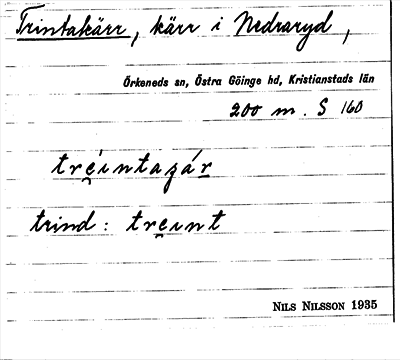 Trintakärr, kärr i Nedraryd,
Örkeneds sn, Östra Göinge hd, Kristianstads län
200 m. S 160
tre̯íntagár
trind: tre̯ınt
NILS NILSSON 1935